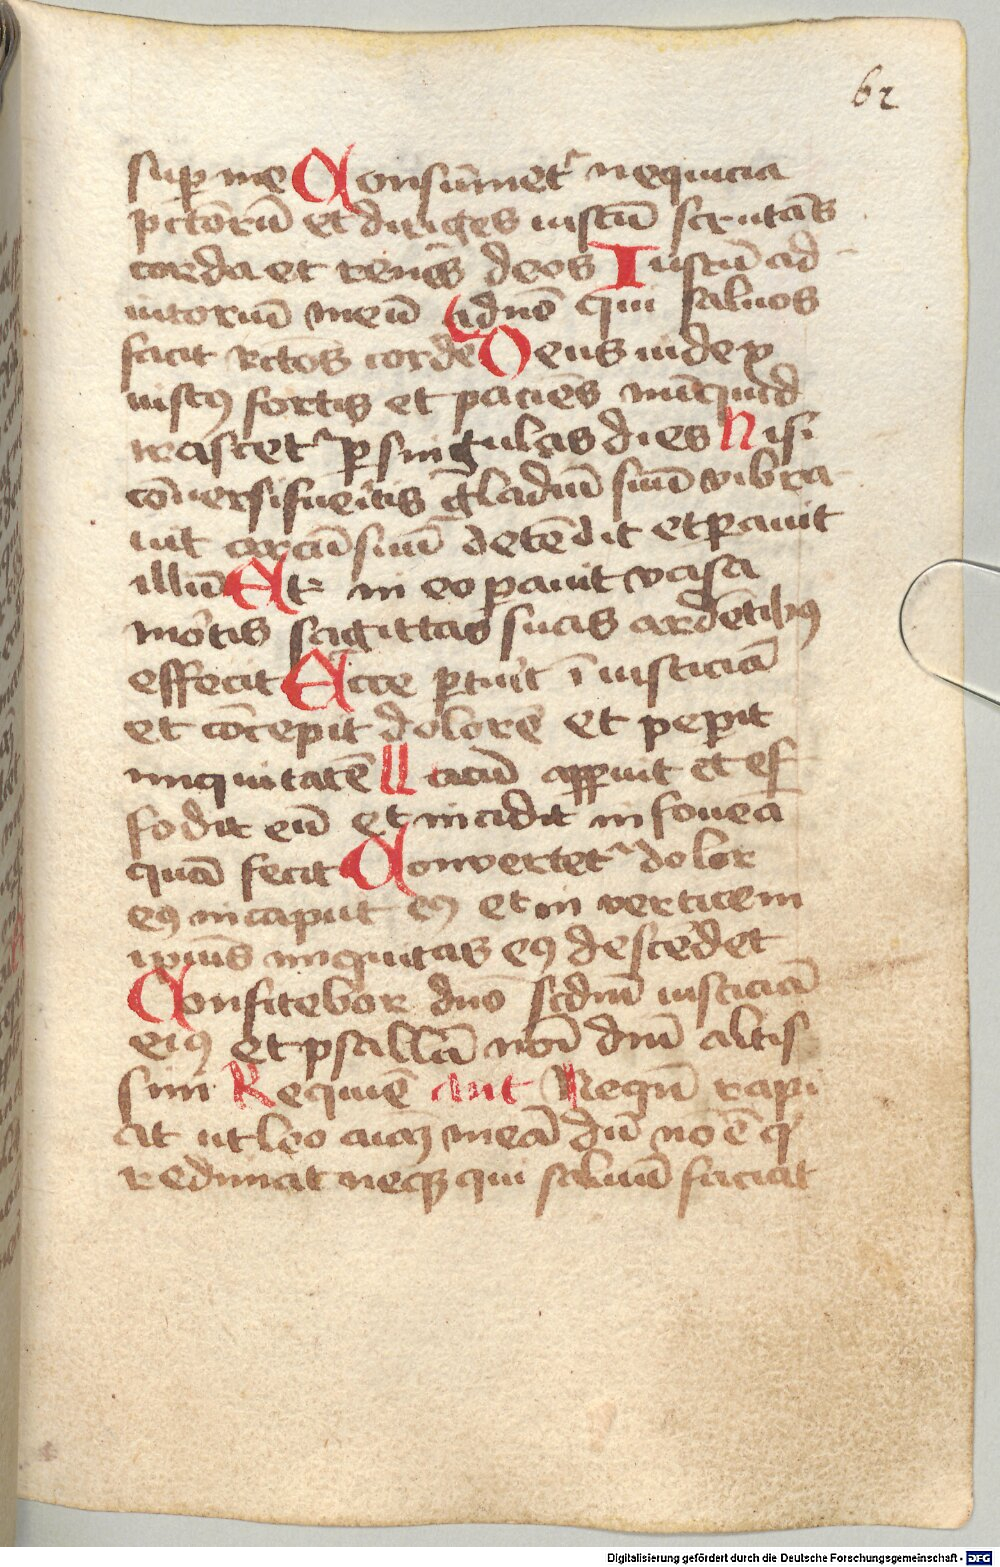 62
sup me Consūmet᷑ nequicia
pc̄torū et diriges iustū scrutās
corda et renes deus Iustū ad
iutoriū meū a dn̄o qui saluos
facit rc̄tos corde Deus iudex
iustꝰ fortis et paciēs nūquid
irascet᷑ ꝑ singulas dies Nisi
cōuersi fueritis gladiū suū vibra
uit arcū suū detēdit et ꝑauit
illū Et in eo ꝑauit vasa
mortis sagittas suas ardētibꝰ
effecit Ecce ꝑturit ī iusticiā
et cōcepit dolorē et peꝑit
iniquitatē Lacū apꝑuit et ef
fodit eū et incidit in foueā
quā fecit Conuertet᷑ dolor
eꝰ in caput eꝰ et in verticem
ipiuˢ iniquitas eꝰ descēdet
Confitebor dn̄o scdm̄ iusticiā
eiꝰ et psallā noī dn̄i altis
simi Requiē Ant Nequā rapi
at ut leo aīaȝ meā dū nō ē q̄
redimat neqȝ qui saluū faciat
Digitalisierung gefördert durch die Deutsche Forschungsgemeinschaft - DFG